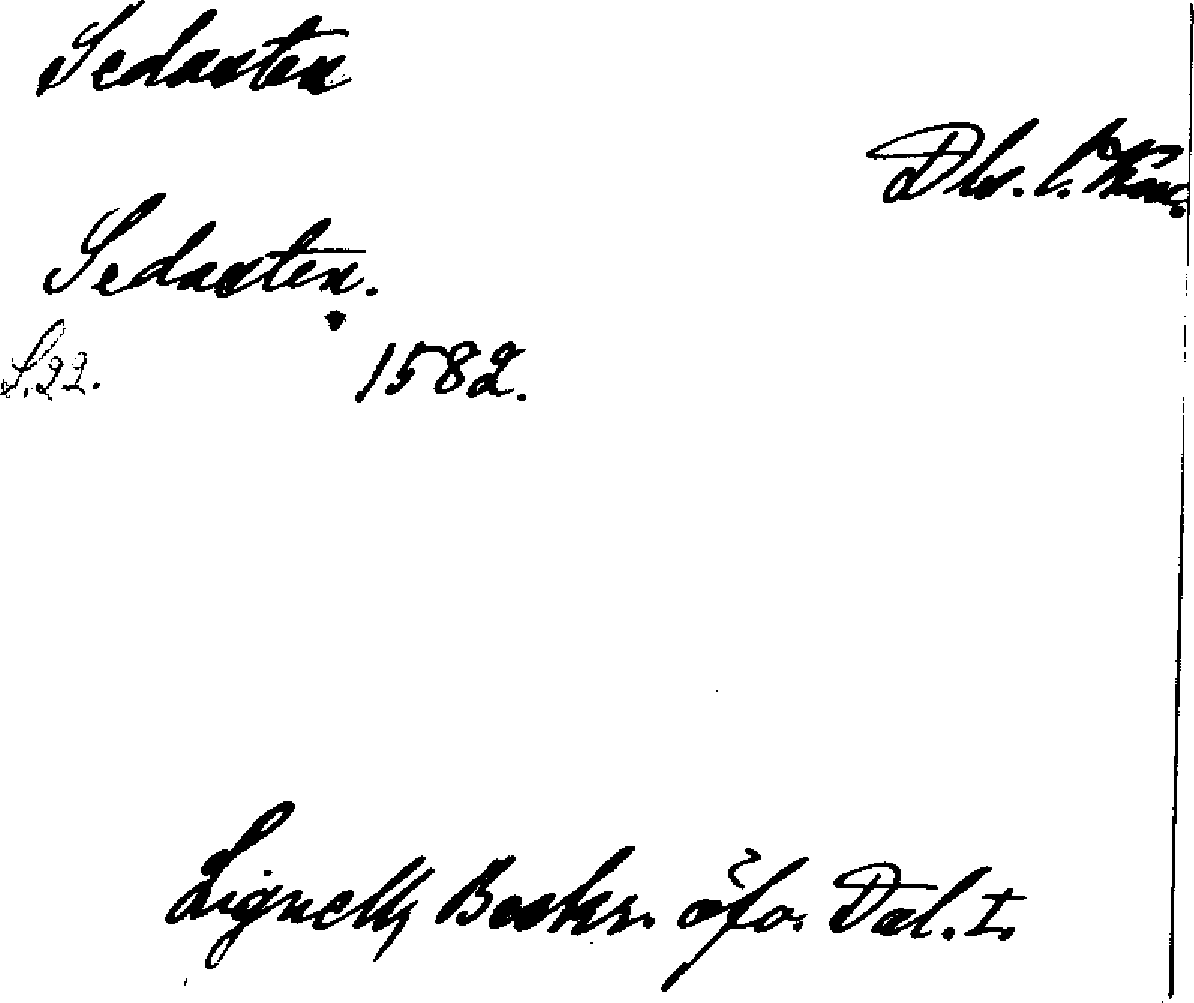 Sedasten
Dls. l.
Sedasten.
S. 22. 1582.
Lignell, Beskr. öfv. Dal. I.